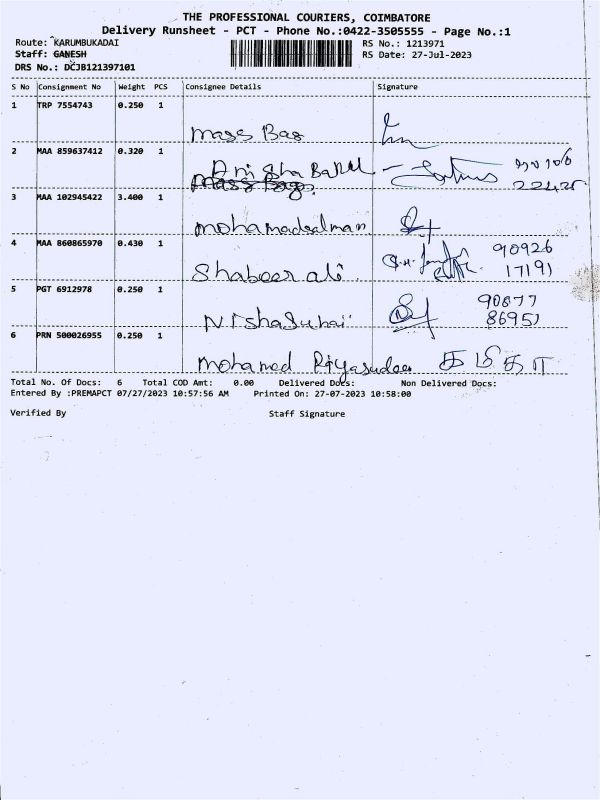 THE PROFESSIONAL COURIERS, COIMBATORE
Delivery Runsheet - PCT - Phone No.:0422-3505555 - Page No.:1
Route: KARUMBUKADAI
RS No.: 1213971
Staff: GANESH
RS Date: 27-Jul-2023
DRS No.: DCJB121397101
S No Consignment No Weight PCS Consignee Details Signature
1 TRP 7554743 0.250 1
mass Bag
2 MAA 859637412 0.320 1
Anisha Banu
mass Bag
22425
3 MAA 102945422 3.400 1
mohamadsalman
4 MAA 860865970 0.430 1
90926
Shabeer ali 17191
5 PGT 6912978 0.250 1
90877
86951
6 PRN 500026955 0.250 1
mohamed Riyasudeen
Total No. Of Docs: 6 Total COD Amt: 0.00 Delivered Docs: Non Delivered Docs:
Entered By :PREMAPCT 07/27/2023 10:57:56 AM Printed On: 27-07-2023 10:58:00
Verified By Staff Signature